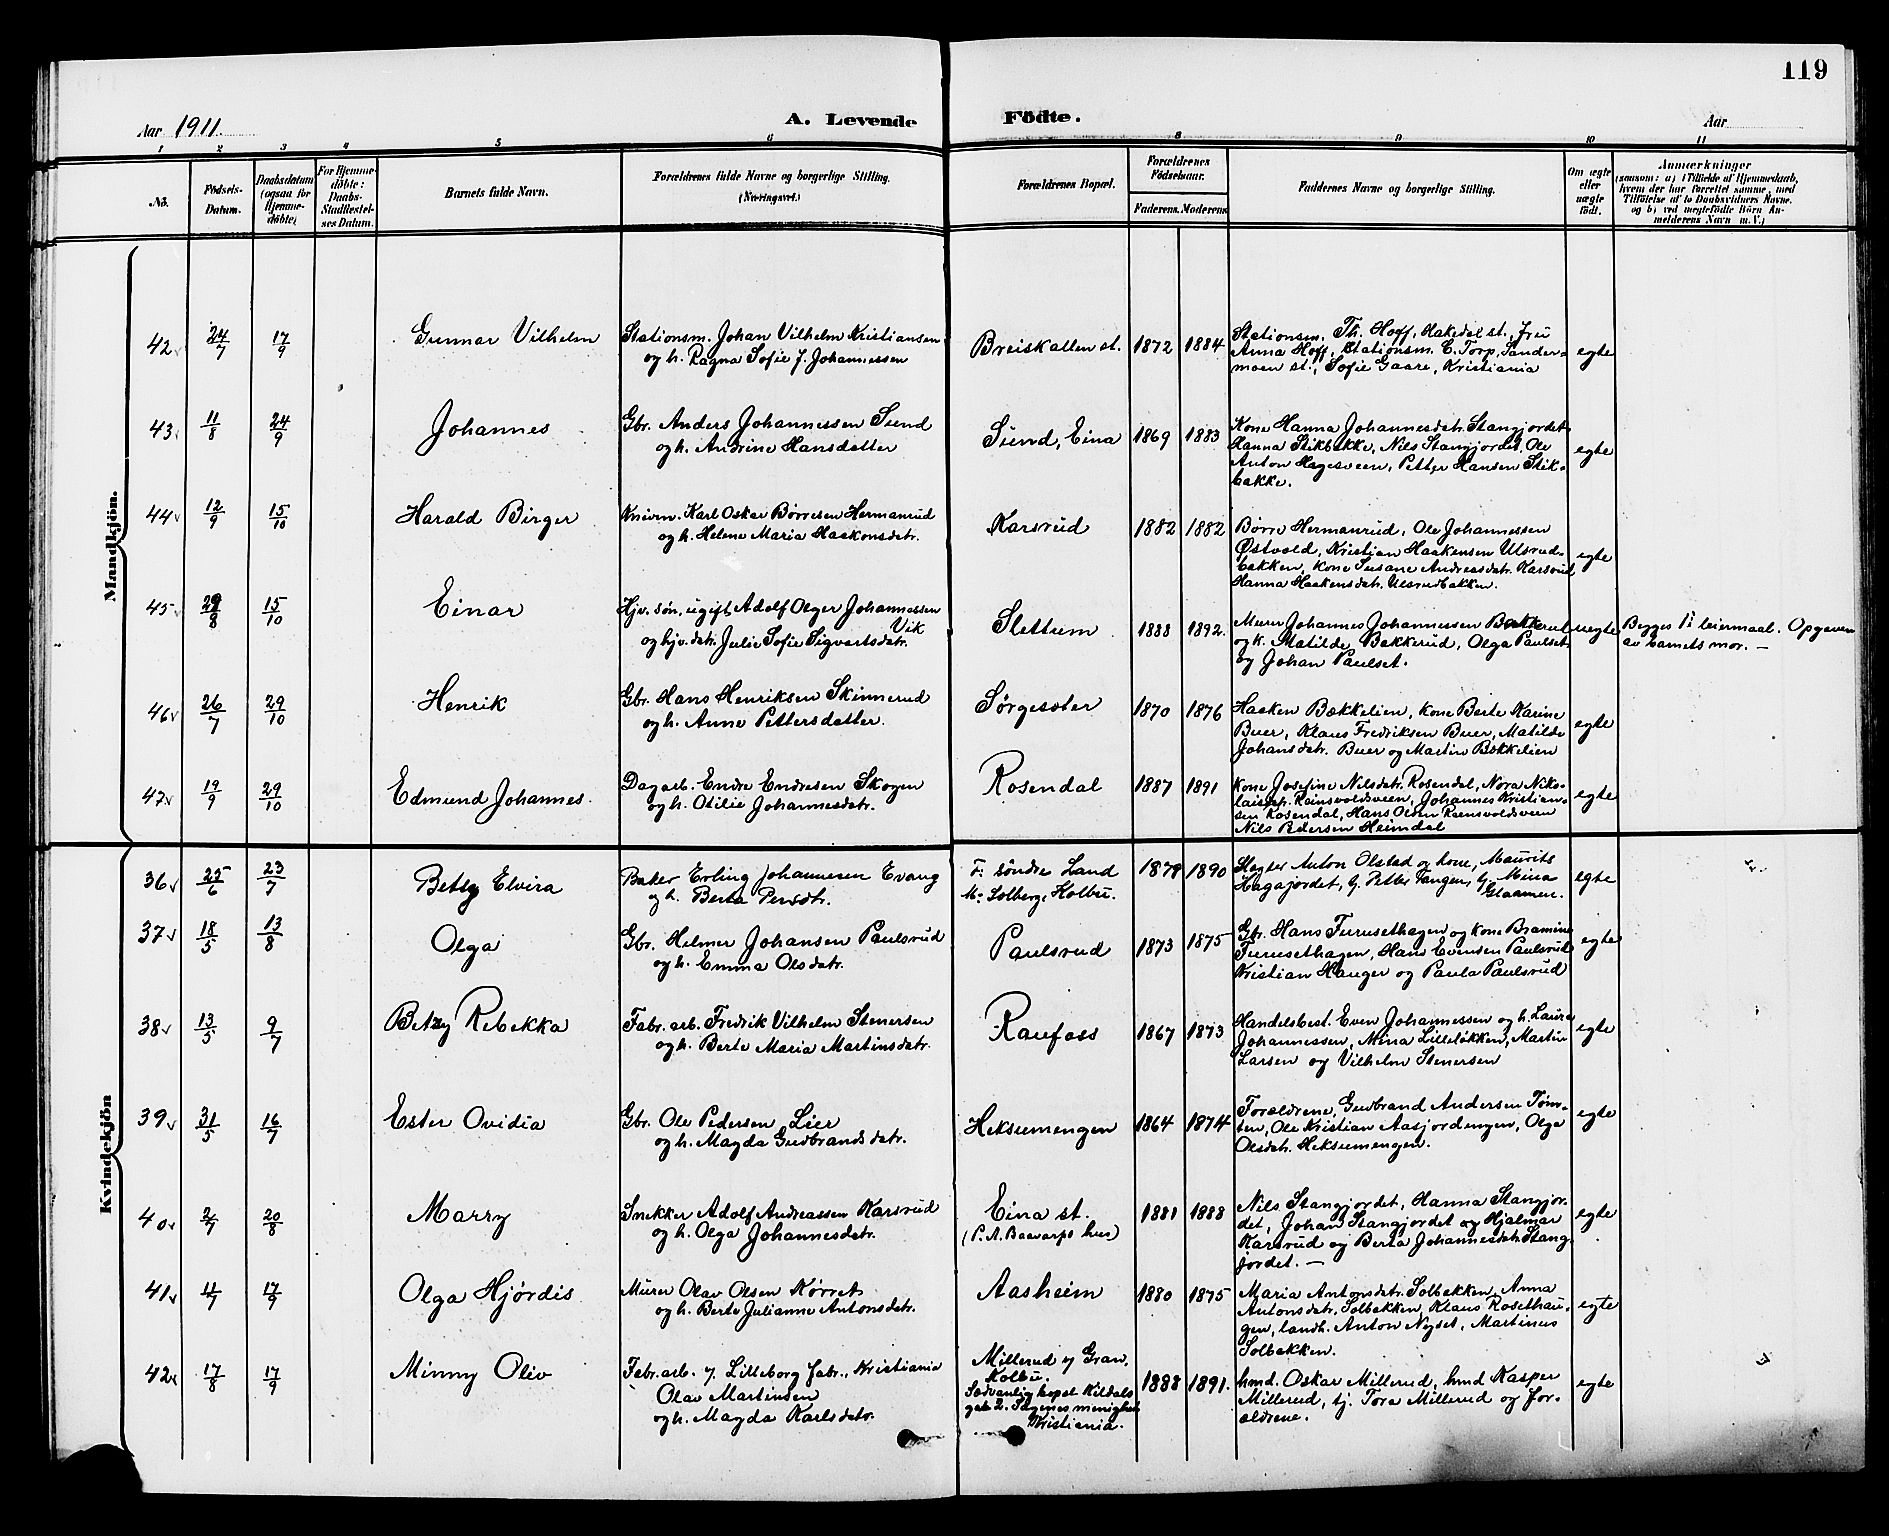 119
Aar 1911.
A. Levende Födte.
Aar
1 2 3 4 5 6 8 9 10 11
No.
Födsels-
Datum.
Daabsdatum
(ogsaa for
Hjemme-
döbte)
For Hjemme-
döbte:
Daabs-
Stadfestel-
ses Datum.
Barnets fulde Navn.
Forældrenes fulde Navne og borgerlige Stilling.
(Næringsvei.)
Forældrenes Bopæl.
Forældrenes
Födselsaar.
Faderens. Moderens.
Faddernes Navne og borgerlige Stilling.
Om ægte
eller
uægte
födt.
Anmærkninger
(saasom: a) i Tilfælde af Hjemmedaab,
hvem der har forrettet samme, med
Tilföielse af to Daabsvidners Navne.
og b) ved uægtefödte Börn An-
melderens Navn m. V.)
Mandkjön.
42 24/7 17/9 Gunnar Vilhelm
Stationsm. Johan Vilhelm Kristiansen
og h. Ragna Sofie f. Johannessen
Breiskallen st. 1872 1884
Stationsm. Th. Hoff, Hakedal st. Fru
Anna Hoff, Stationsm. C. Torp, Sander-
moen st., Sofie Gaare, Kristiania
egte
43 11/8 24/9 Johannes
Gbr. Anders Johannessen Sund
og h. Andrine Hansdatter
Sund, Eina 1869 1883
Kone Hanna Johannesdatr. Stangjordet
Hanna Stikbakke, Nils Stangjordet, Ole
Anton Hagesveen, Petter Hansen Stik-
bakke.
egte
44 12/9 15/10 Harald Birger
Knivm. Karl Oskar Børresen Hermanrud
og h. Helene Maria Haakonsdatr.
Karsrud 1882 1882
Børre Hermanrud, Ole Johannessen
Østvold, Kristian Haakensen Ulsrud-
bakken, kone Susane Andreasdatr. Karsrud
Hanna Haakensdatr. Ulsrudbakken.
egte
45 29/8 15/10 Einar
Hjv. søn, ugift Adolf Olger Johannessen
Vik
og hjv. datr. Julie Sofie Sigvartsdatr.
Slettum 1888 1892.
Murer Johannes Johannessen Bakkerud
og k. Matilde Bakkerud, Olga Paulset
og Johan Paulset.
uegte
Begges 1ste leiermaal. Opgaven
av barnets mor. —
46 26/7 29/10 Henrik
Gbr. Hans Henriksen Skinnerud
og h. Anne Pettersdatter.
Sørgesæter 1870 1876
Haaken Bækkelien, kone Berte Karine
Buer, Klaus Fredriksen Buer, Matilde
Johansdatr. Buer og Martin Bækkelien
egte
47 19/9 29/10 Edmund Johannes.
Dagarb. Endre Endresen Skogen
og h. Otilie Johannesdatr.
Rosendal 1887 1891
Kone Josefine Nilsdatr. Rosendal, Nora Niko-
laisdtr. Reinsvoldsveen, Johannes Kristian-
sen Rosendal, Hans Olsen Reinsvoldsveen
Nils Pedersen Heimdal
egte
Kvindekjön
36 25/6 23/7 Betsy Elvira
Baker Erling Johannesen Evang
og h. Berta Persdtr.
F: søndre Land
M: Solberg, Kolbu.
1879 1890
Slagter Anton Olstad og kone, Maurits
Hagajordet, g. Petter Tangen, g. Mina
Glaamen.
egte
37 18/5 13/8 Olga
Gbr. Helmer Johansen Paulsrud
og h. Emma Olsdatr.
Paulsrud 1873 1875
Gbr. Hans Furusethagen og kone Bramine
Furusethagen, Hans Evensen Paulsrud
Kristian Hauger og Paula Paulsrud
egte
38 13/5 9/7 Betzy Rebekka
Fabr. arb. Fredrik Vilhelm Stenersen
og h. Berte Maria Martinsdatr.
Raufoss 1867 1873
Handelsbest. Even Johannessen og h. Laura
Johannessen, Mina Lilleløkken, Martin
Larsen og Vilhelm Stenersen
egte
39 31/5 16/7 Ester Ovidia
Gbr. Ole Pedersen Lier
og h. Magda Gudbrandsdatr.
Heksumengen 1864 1874
Forældrene, Gudbrand Andersen Tøm-
ten, Ole Kristian Aasjordengen, Olga
Olsdatr. Heksumengen.
egte
40 2/7 20/8 Marry
Snekker Adolf Andreassen Karsrud
og h. Olga Johannesdatr.
Eina st.
(P. A. Baevarps hus)
1881 1888
Nils Stangjordet, Hanna Stangjor-
det, Johan Stangjordet og Hjalmar
Karsrud og Berta Johannesdatr. Stang-
jordet. —
egte
41 11/7 17/9 Olga Hjørdis
Murer Olav Olsen Kørret
og h. Berte Julianne Antonsdatr.
Aasheim 1880 1875
Maria Antonsdatr. Solbakken, Anna
Antonsdatr. Solbakken, Klaus Rosethau-
gen, landh. Anton Nyset, Martinus
Solbakken.
egte
42 17/8 17/9 Minny Oliv
Fabr. arb. v. Lilleborg fabr., Kristiania
Olav Martinsen
og h. Magda Karlsdatr.
Millerud v Gran,
Kolbu.
Sedvanlig bopel Kildals
gate 2. Sagenes menighet
Kristiania.
1888 1891.
hmd. Oskar Millerud, hmd Kasper
Millerud, tj. Tora Millerud og for-
ældrene.
egte